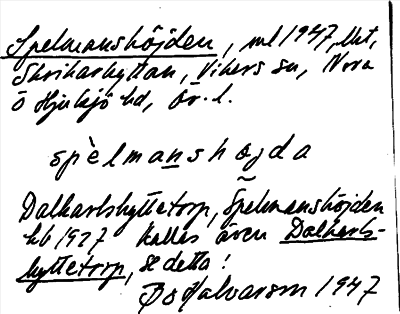 Spelmanshöjden, ml 1947, lht,
Skrikarhyttan, Vikers sn, Nora
o Hjulsjö hd, Ör. l.
spèlmanshøjda
Dalkarlshyttetorp, Spelmanshöjden
hb 1927 Kallas även Dalkarls-
hyttetorp, se detta!
Bo Halvarson 1947